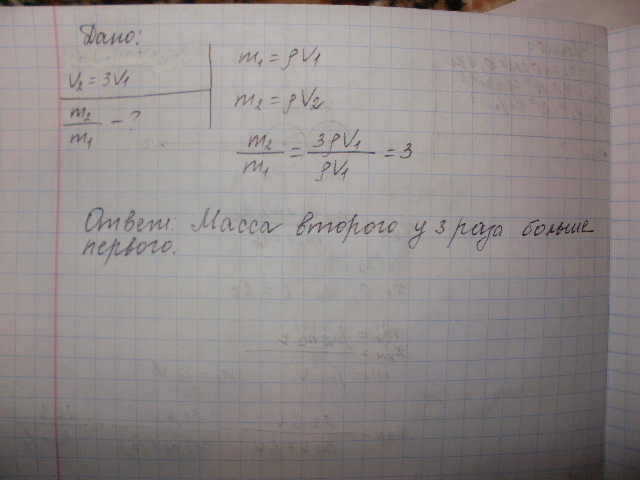 Дано:
V₂ = 3V₁
m₂/m₁ - ?
m₁ = ρV₁
m₂ = ρV₂
m₂/m₁ = 3ρV₁/ρV₁ = 3
Ответ: Масса второго у 3 раза больше
первого.